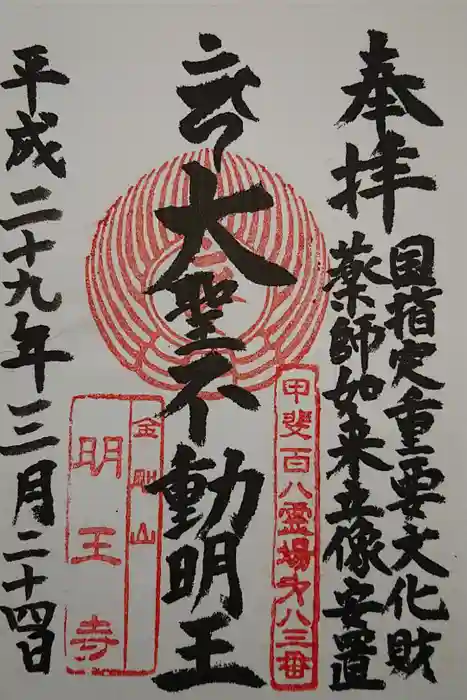 奉拝
国指定重要文化財
薬師如来立像安置
甲斐百八霊場第八三番
大聖不動明王
金剛山
明王寺
平成二十九年三月二十四日